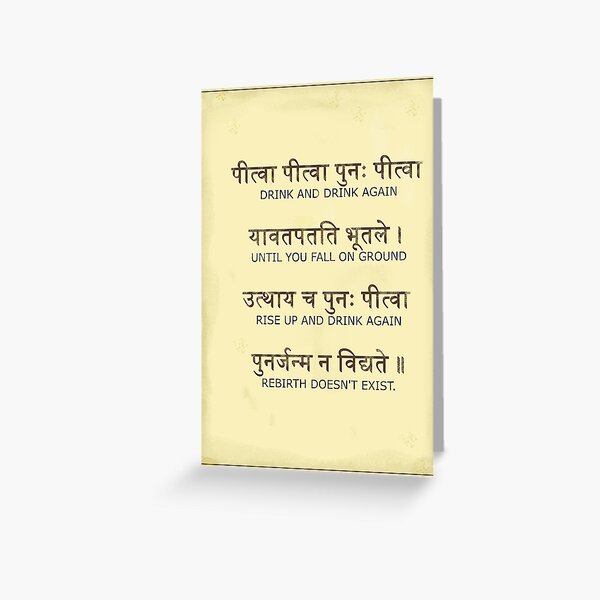 पीत्वा पीत्वा पुनः पीत्वा
DRINK AND DRINK AGAIN
यावतपतति भूतले ।
UNTIL YOU FALL ON GROUND
उत्थाय च पुनः पीत्वा
RISE UP AND DRINK AGAIN
पुनर्जन्म न विद्यते ॥
REBIRTH DOESN'T EXIST.